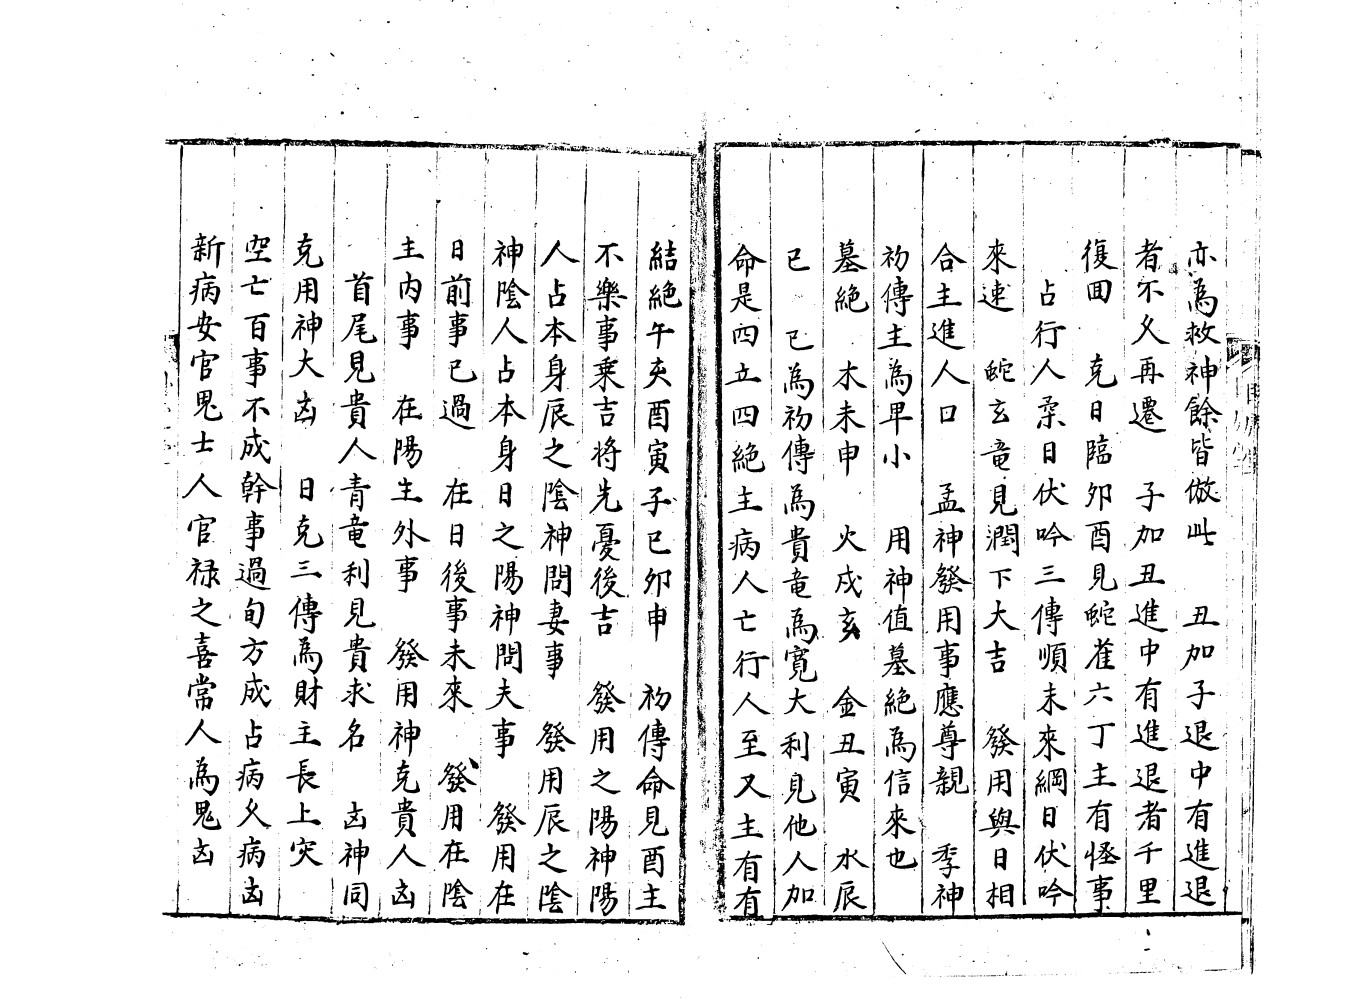 亦為救神餘皆倣此 丑加子退中有進退
者不久再遷 子加丑進中有進退者千里
復回 克日臨卯酉見蛇雀六丁主有怪事
占行人柔日伏吟三傳順未來綱日伏吟
來速 蛇玄竜見潤下大吉 發用與日相
合主進人口 孟神發用事應尊親 季神
初傳主為卑小 用神值墓絕為信來也
墓絕 木未申 火戌亥 金丑寅 水辰
巳 巳為初傳為貴竜為寬大利見他人加
命是四立四絕主病人亡行人至又主有有
結絕午亥酉寅子巳卯申 初傳命見酉主
不樂事乘吉將先憂後吉 發用之陽神陽
人占本身辰之陰神問妻事 發用辰之陰
神陰人占本身日之陽神問夫事 發用在
日前事已過 在日後事未來 發用在陰
主内事 在陽主外事 發用神克貴人凶
首尾見貴人青竜利見貴求名 凶神同
克用神大凶 日克三傳為財主長上灾
空亡百事不成幹事過旬方成占病久病凶
新病安官鬼士人官禄之喜常人為鬼凶